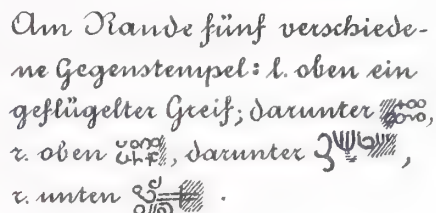 Am Rande fünf verschiede-
ne Gegenstempel: l. oben ein
geflügelter Greif; darunter ,
r. oben , darunter ,
r. unten .